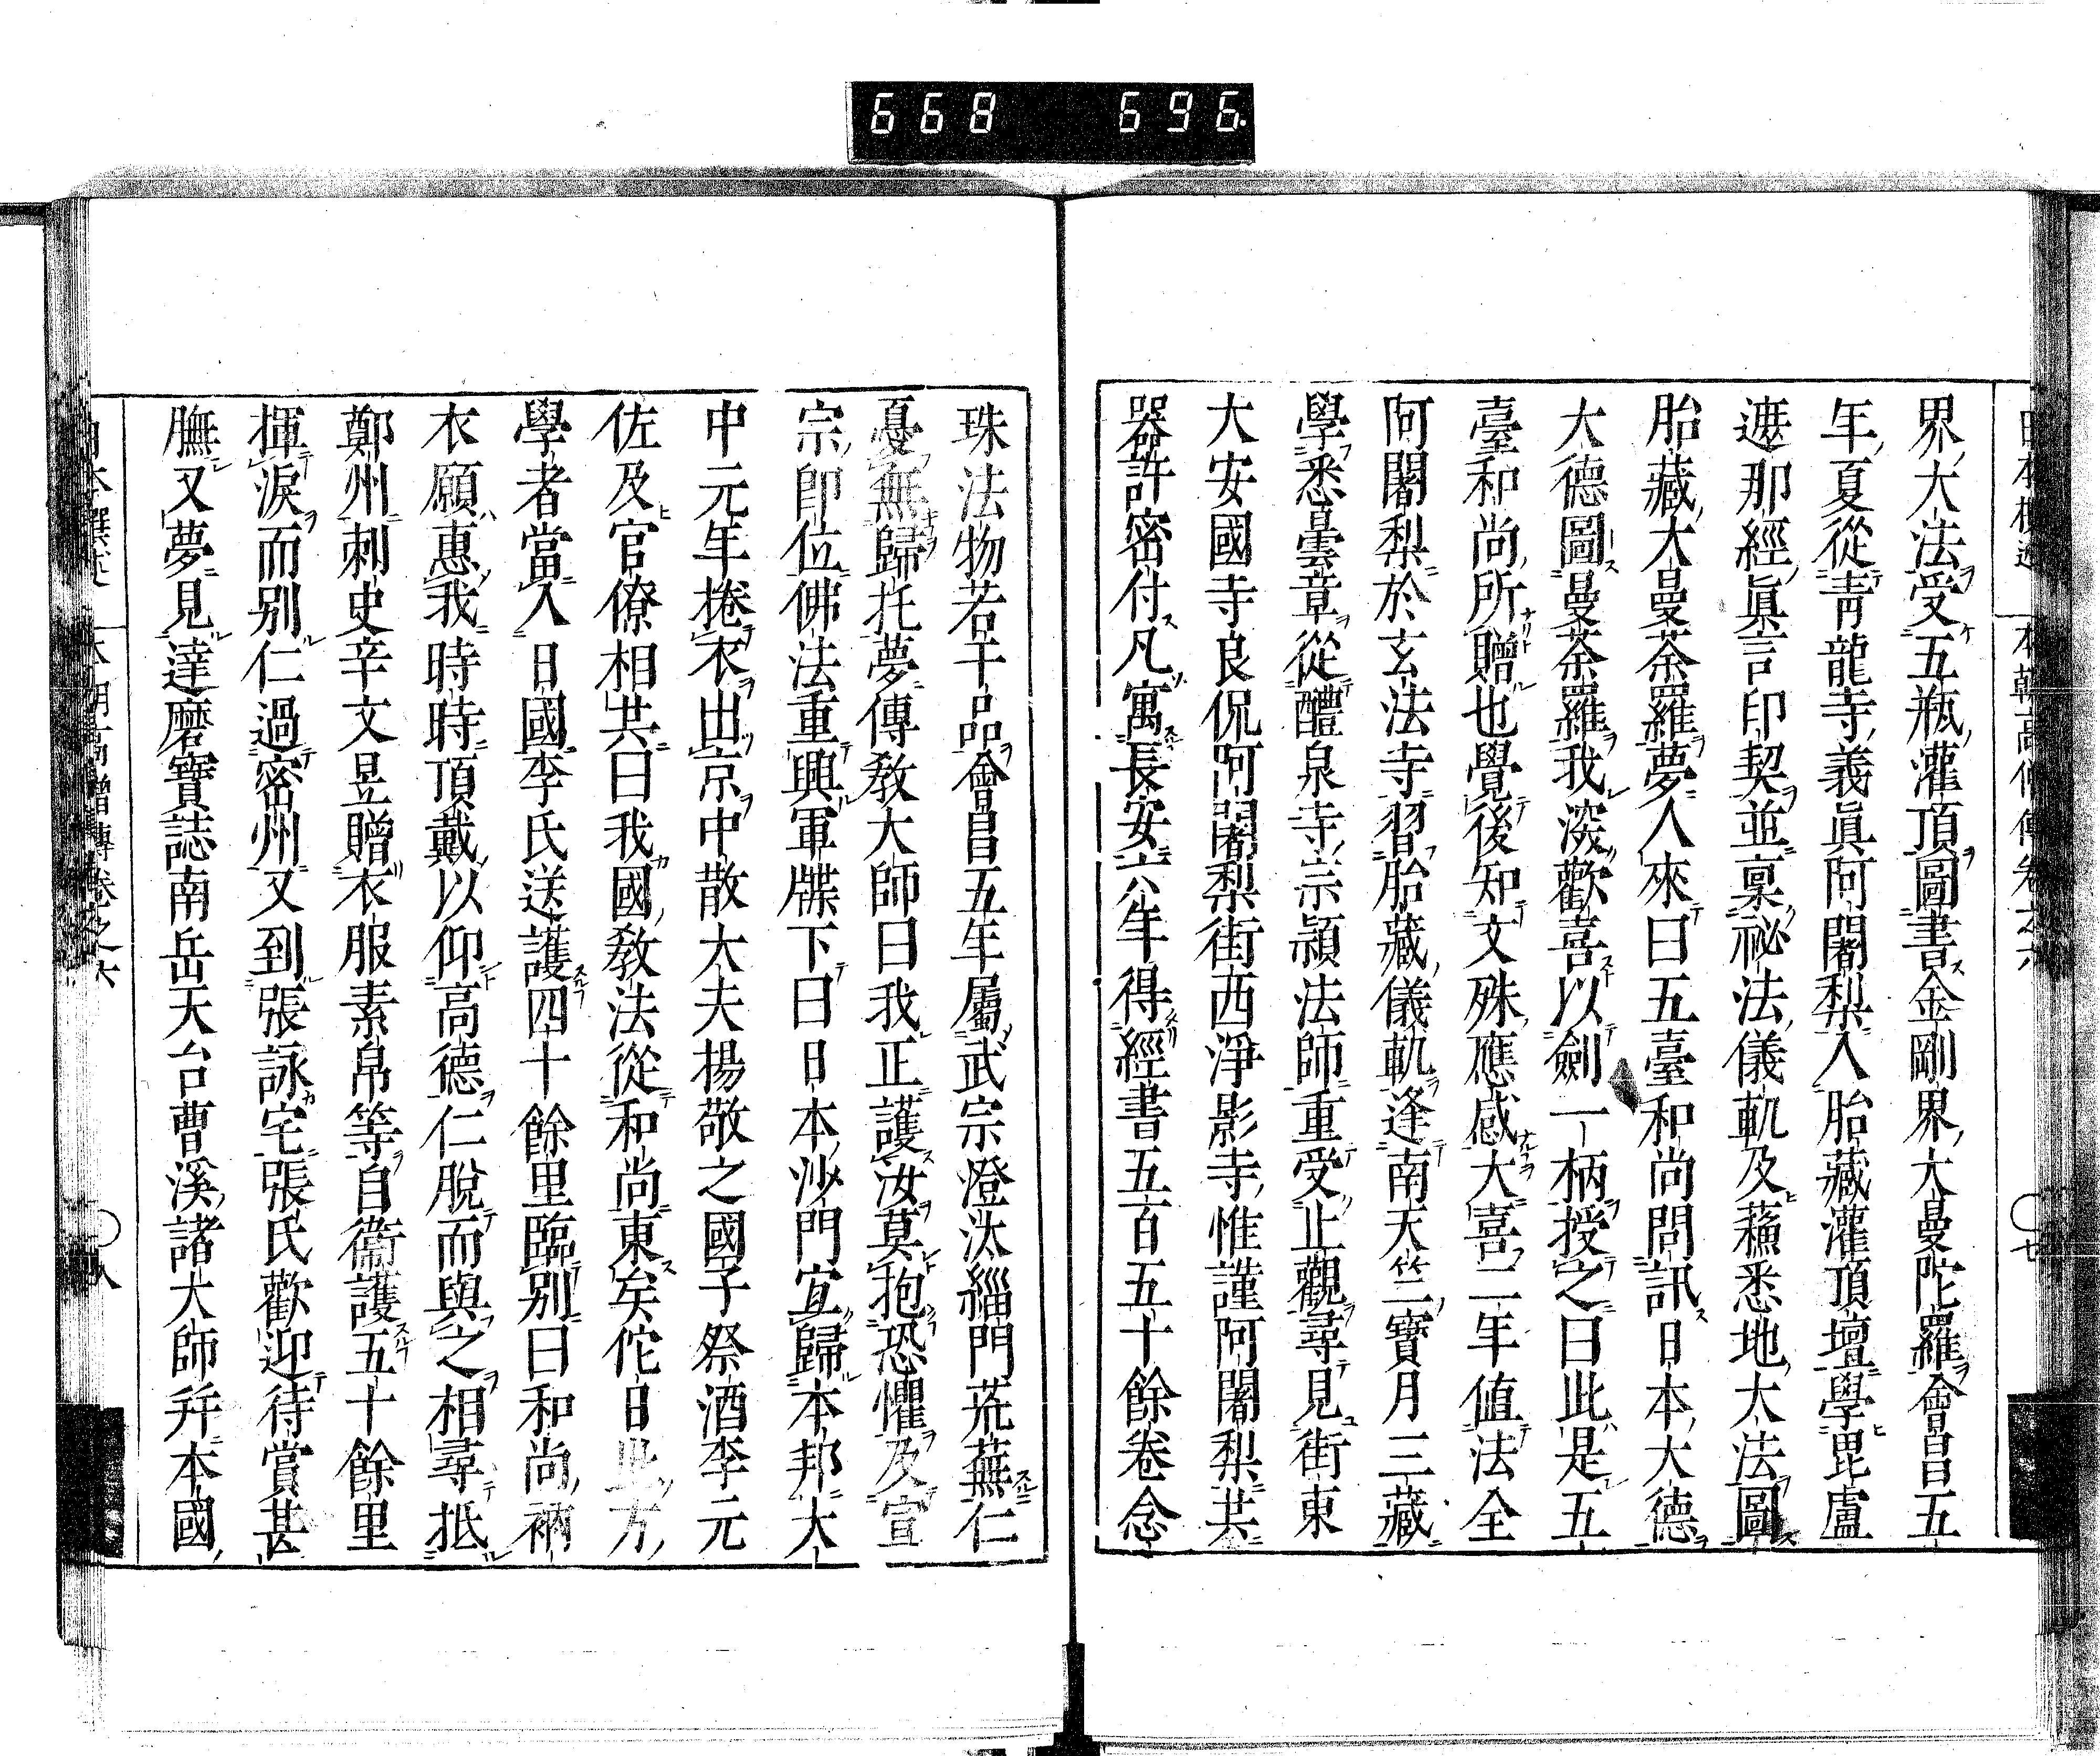 668 696.
界大法受五瓶灌頂圖書金剛界大曼陀羅會昌五
年夏從青龍寺義眞阿闍梨入胎藏灌頂壇學毘盧
遮那經眞言印契並稟祕法儀軌及蘓悉地大法圖
胎藏大曼荼羅夢人來曰五臺和尚問訊日本大德
大德圖曼荼羅我深歡喜以劍一柄授之曰此是五
臺和尚所贈也覺後知文殊應感大喜二年値法全
阿闍梨於玄法寺習胎藏儀軌逢南天竺寶月三藏
學悉曇章從醴泉寺宗頴法師重受止觀尋見街東
大安國寺良侃阿闍梨街西淨影寺惟謹阿闍梨共
器許密付凡寓長安六年得經書五百五十餘卷念
珠法物若干品會昌五年屬武宗澄汰緇門荒蕪仁
憂無歸托夢傳教大師曰我正護汝莫抱恐懼及宣
宗卽位佛法重興軍牒下曰日本沙門宜歸本邦大
中元年捲衣出京中散大夫揚敬之國子祭酒李元
佐及官僚相共曰我國教法從和尚東矣佗日此方
學者當入日國李氏送護四十餘里臨別曰和尚衲
衣願惠我時時頂戴以仰高德仁脫而與之相尋抵
鄭州刺史辛文昱贈衣服素帛等自衞護五十餘里
揮淚而別仁過密州又到張詠宅張氏歡迎待賞甚
膴又夢見達磨寶誌南岳天台曹溪諸大師幷本國